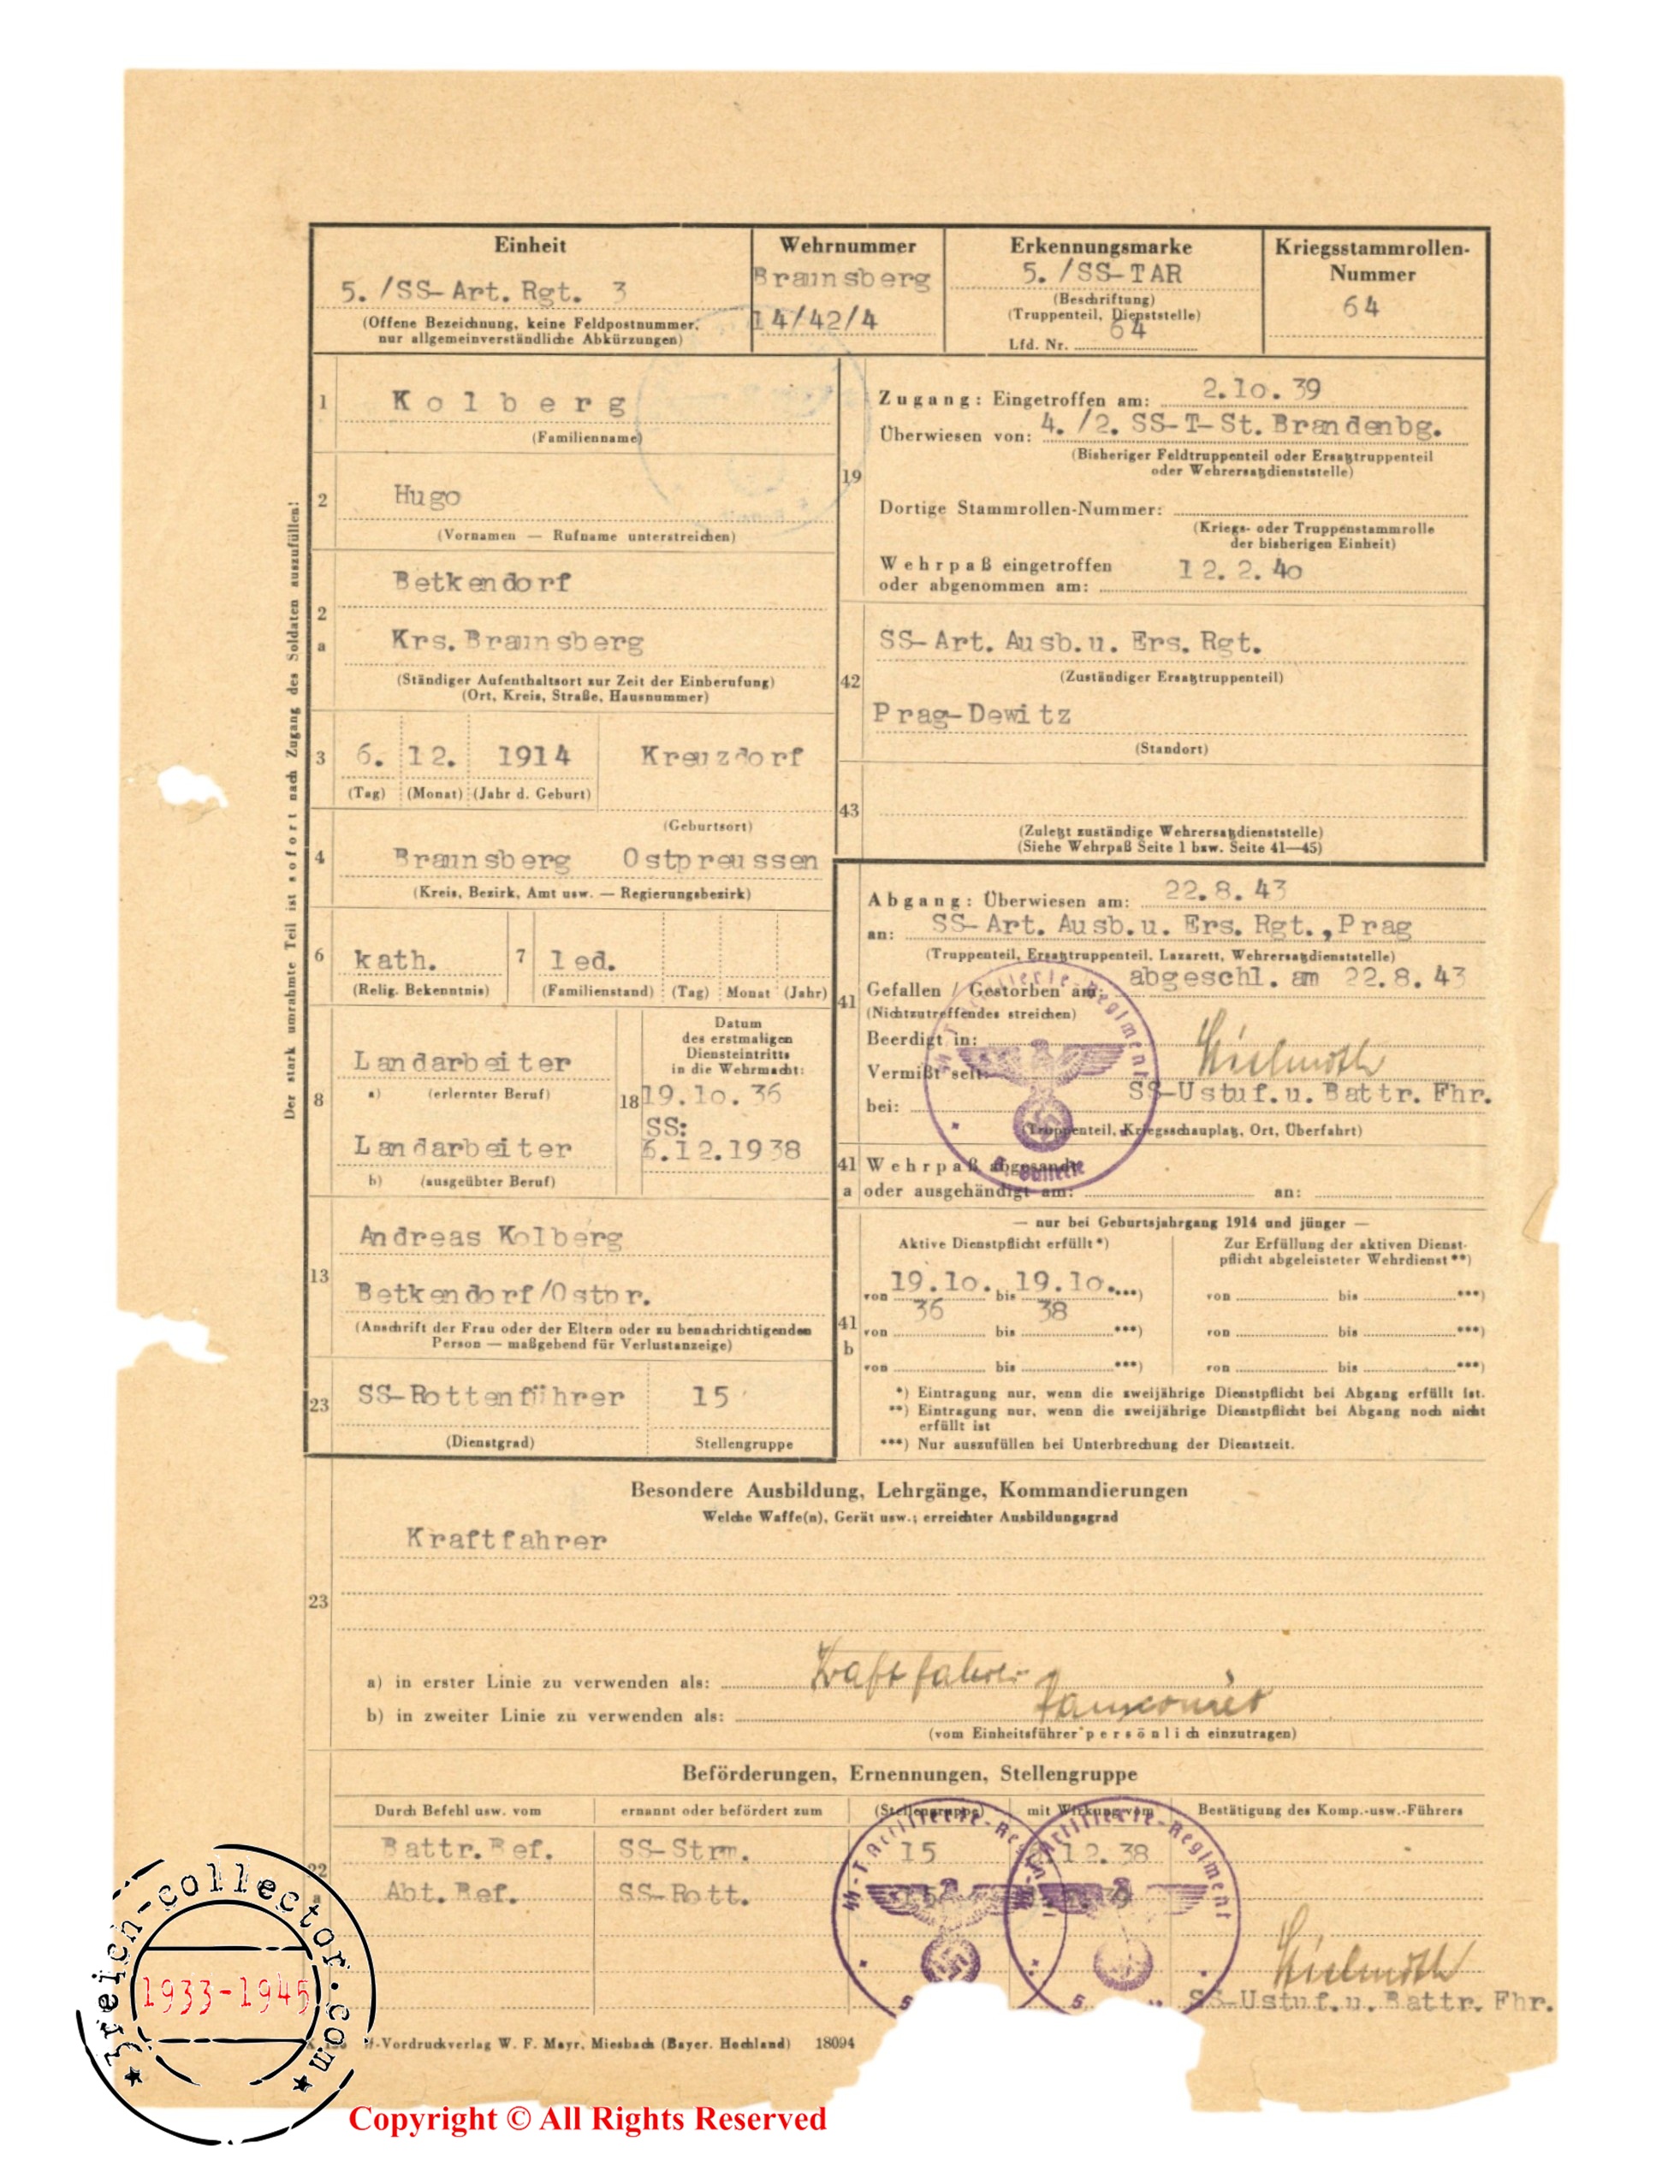 Einheit
5./SS-Art. Rgt. 3
(Offene Bezeichnung, keine Feldpostnummer,
nur allgemeinverständliche Abkürzungen)
Wehrnummer
Braunsberg
14/42/4
Erkennungsmarke
5./SS-TAR
(Beschriftung)
(Truppenteil, Dienststelle)
64
Lfd. Nr.
Kriegsstammrollen-
Nummer
64
Der stark umrahmte Teil ist sofort nach Zugang des Soldaten auszufüllen!
1
Kolberg
(Familienname)
2
Hugo
(Vornamen — Rufname unterstreichen)
2
a
Betkendorf
Krs. Braunsberg
(Ständiger Aufenthaltsort zur Zeit der Einberufung)
(Ort, Kreis, Straße, Hausnummer)
3
6. 12. 1914 Kreuzdorf
(Tag) (Monat) (Jahr d. Geburt)
(Geburtsort)
4
Braunsberg Ostpreussen
(Kreis, Bezirk, Amt usw. — Regierungsbezirk)
6 kath. 7 led.
(Relig. Bekenntnis) (Familienstand) (Tag) Monat (Jahr)
8
Landarbeiter
a) (erlernter Beruf)
Landarbeiter
b) (ausgeübter Beruf)
18
Datum
des erstmaligen
Diensteintritts
in die Wehrmacht:
19.10.36
SS:
6.12.1938
13
Andreas Kolberg
Betkendorf/Ostpr.
(Anschrift der Frau oder der Eltern oder zu benachrichtigenden
Person — maßgebend für Verlustanzeige)
23
SS-Rottenführer 15
(Dienstgrad) Stellengruppe
19
Zugang: Eingetroffen am: 2.10.39
Überwiesen von: 4./2. SS-T-St. Brandenbg.
(Bisheriger Feldtruppenteil oder Ersatztruppenteil
oder Wehrersatzdienststelle)
Dortige Stammrollen-Nummer:
(Kriegs- oder Truppenstammrolle
der bisherigen Einheit)
Wehrpaß eingetroffen
oder abgenommen am: 12.2.40
42
SS-Art. Ausb.u. Ers. Rgt.
(Zuständiger Ersatztruppenteil)
Prag-Dewitz
(Standort)
43
(Zuletzt zuständige Wehrersatzdienststelle)
(Siehe Wehrpaß Seite 1 bzw. Seite 41—45)
41
Abgang: Überwiesen am: 22.8.43
an: SS-Art. Ausb.u. Ers. Rgt.,Prag
(Truppenteil, Ersatztruppenteil, Lazarett, Wehrersatzdienststelle)
abgeschl. am 22.8.43
Gefallen / Gestorben am:
(Nichtzutreffendes streichen)
Beerdigt in:
Vermißt seit:
SS-Ustuf.u. Battr. Fhr.
bei:
(Truppenteil, Kriegsschauplatz, Ort, Überfahrt)
41
a
Wehrpaß abgesandt
oder ausgehändigt am: an:
— nur bei Geburtsjahrgang 1914 und jünger —
Aktive Dienstpflicht erfüllt *)
Zur Erfüllung der aktiven Dienst-
pflicht abgeleisteter Wehrdienst **)
41
b
von 19.10. bis 19.10. ***) von bis ***)
36 38
von bis ***) von bis ***)
von bis ***) von bis ***)
*) Eintragung nur, wenn die zweijährige Dienstpflicht bei Abgang erfüllt ist.
**) Eintragung nur, wenn die zweijährige Dienstpflicht bei Abgang noch nicht
erfüllt ist
***) Nur auszufüllen bei Unterbrechung der Dienstzeit.
Besondere Ausbildung, Lehrgänge, Kommandierungen
Welche Waffe(n), Gerät usw.; erreichter Ausbildungsgrad
Kraftfahrer
23
a) in erster Linie zu verwenden als: Kraftfahrer
b) in zweiter Linie zu verwenden als:
(vom Einheitsführer persönlich einzutragen)
Beförderungen, Ernennungen, Stellengruppe
Durch Befehl usw. vom ernannt oder befördert zum (Stellengruppe) mit Wirkung vom Bestätigung des Komp.-usw.-Führers
22
a
Battr.Bef. SS-Strm. 15 12.38
Abt.Bef. SS-Rott.
SS-Ustuf.u. Battr. Fhr.
SS-Vordruckverlag W. F. Mayr, Miesbach (Bayer. Hochland) 18094
SS-T Artillerie-Regiment
3reich-collector.com
1933-1945
Copyright © All Rights Reserved